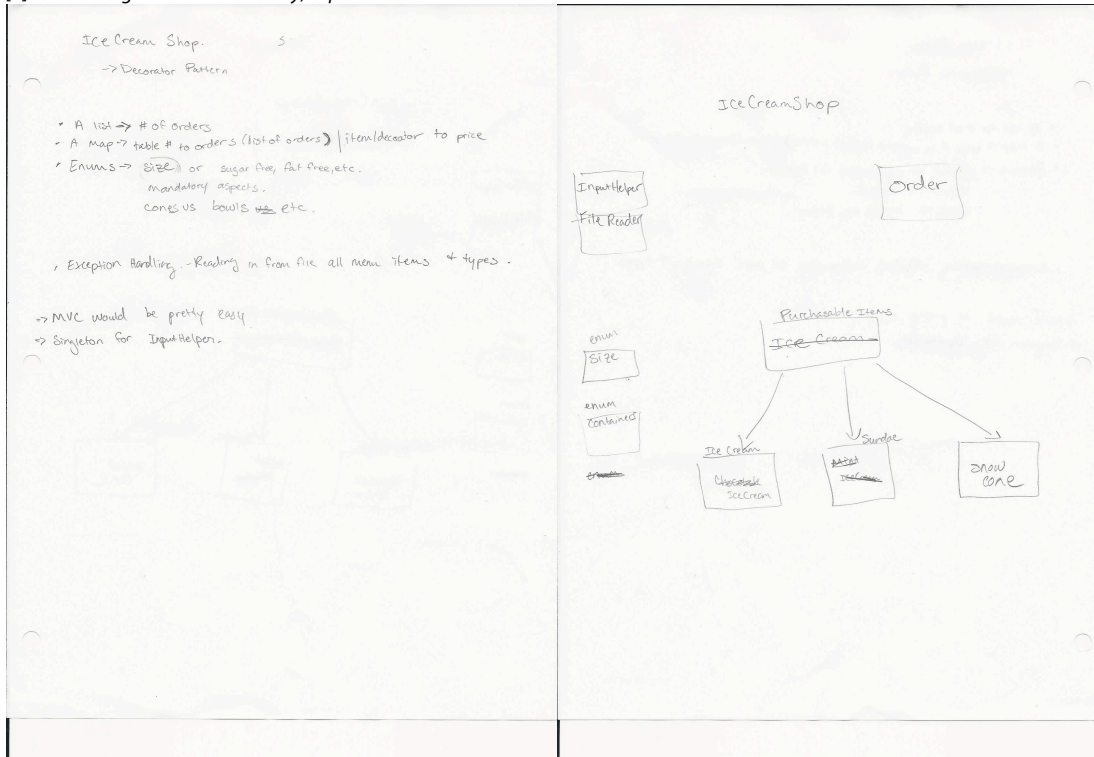 Ice Cream Shop.
-> Decorator Pattern
• A list -> # of orders
• A map -> table # to orders (list of orders) | item/decoator to price
• Enums -> Size or sugar free, fat free, etc.
mandatory aspects.
cones vs bowls etc.
, Exception Handling. - Reading in from file all menu items + types.
-> MVC would be pretty easy.
-> Singleton for InputHelper.
IceCreamShop
InputHelper
File Reader
Order
Purchasable Items
Ice Cream
enum
Size
enum
Containers
enum
Ice Cream
Chocolate
IceCream
Sundae
Mint
IceCream
Snow
Cone